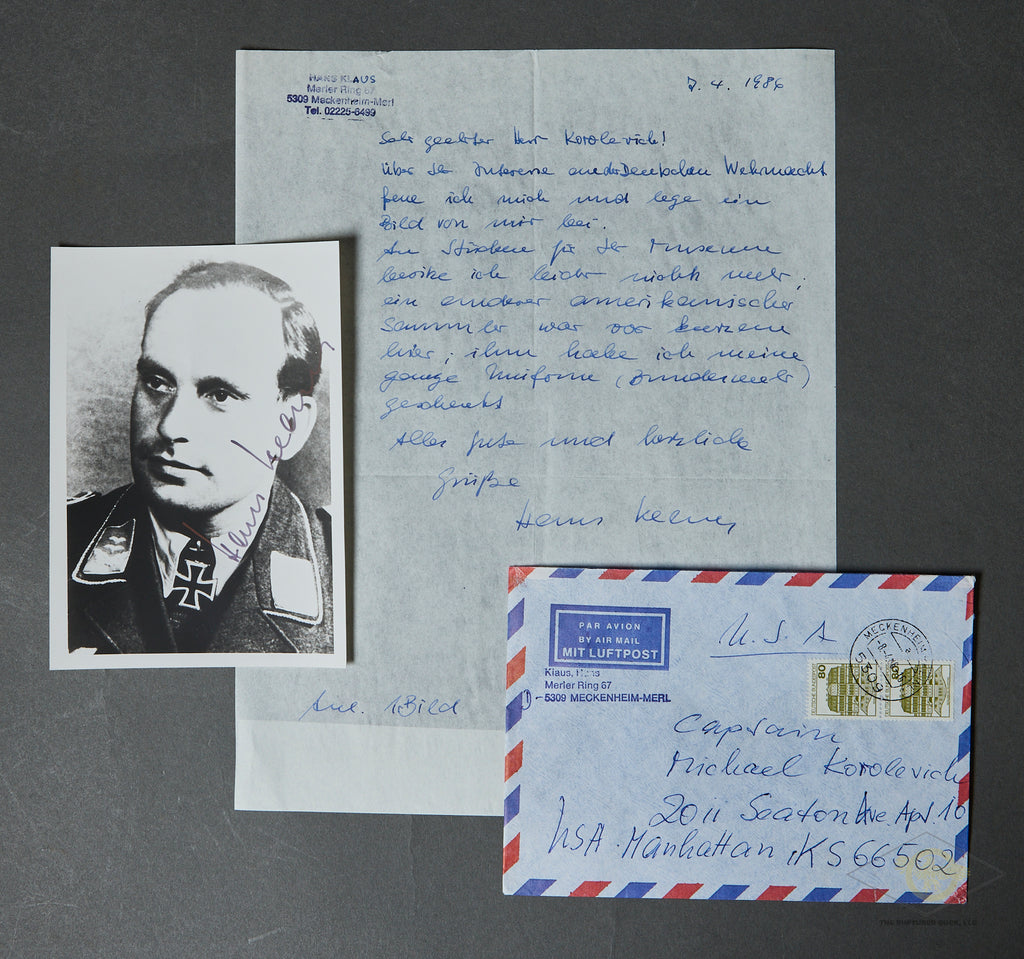 HANS KLAUS
Merler Ring 67
5309 Meckenheim-Merl
Tel. 02225-6499
7. 4. 1986
Sehr geehrter Herr Korolevich!
über Ihr Interesse an der Deutschen Wehrmacht
freue ich mich und lege ein
Bild von mir bei.
An Stücken für Ihr Museum
besitze ich leider nichts mehr;
ein anderer amerikanischer
Sammler war vor kurzem
hier; ihm habe ich meine
ganze Uniform (Bundeswehr)
geschenkt
Alles Gute und herzliche
Grüße
Hans Klaus
Anl. 1 Bild
Hans Klaus
PAR AVION
BY AIR MAIL
MIT LUFTPOST
U. S. A
Klaus, Hans
Merler Ring 67
5309 MECKENHEIM-MERL
MECKENHEIM
5309
80
Captain
Michael Korolevich
2011 Seaton Ave. Apt. 10
USA Manhattan, KS 66502
THE RUPTURED DUCK, LLC